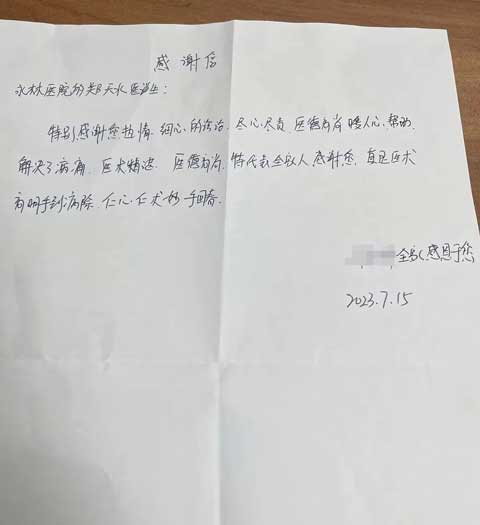 感谢信
水林医院的郑天水医生：
特别感谢您热情、细心的诊治、尽心尽责、医德高尚 暖人心、帮我
解决了病痛、医术精湛、医德高尚、特代表全家人感谢您、真是医术
高明手到病除、仁心仁术妙手回春.
全家人感恩于您
2023.7.15